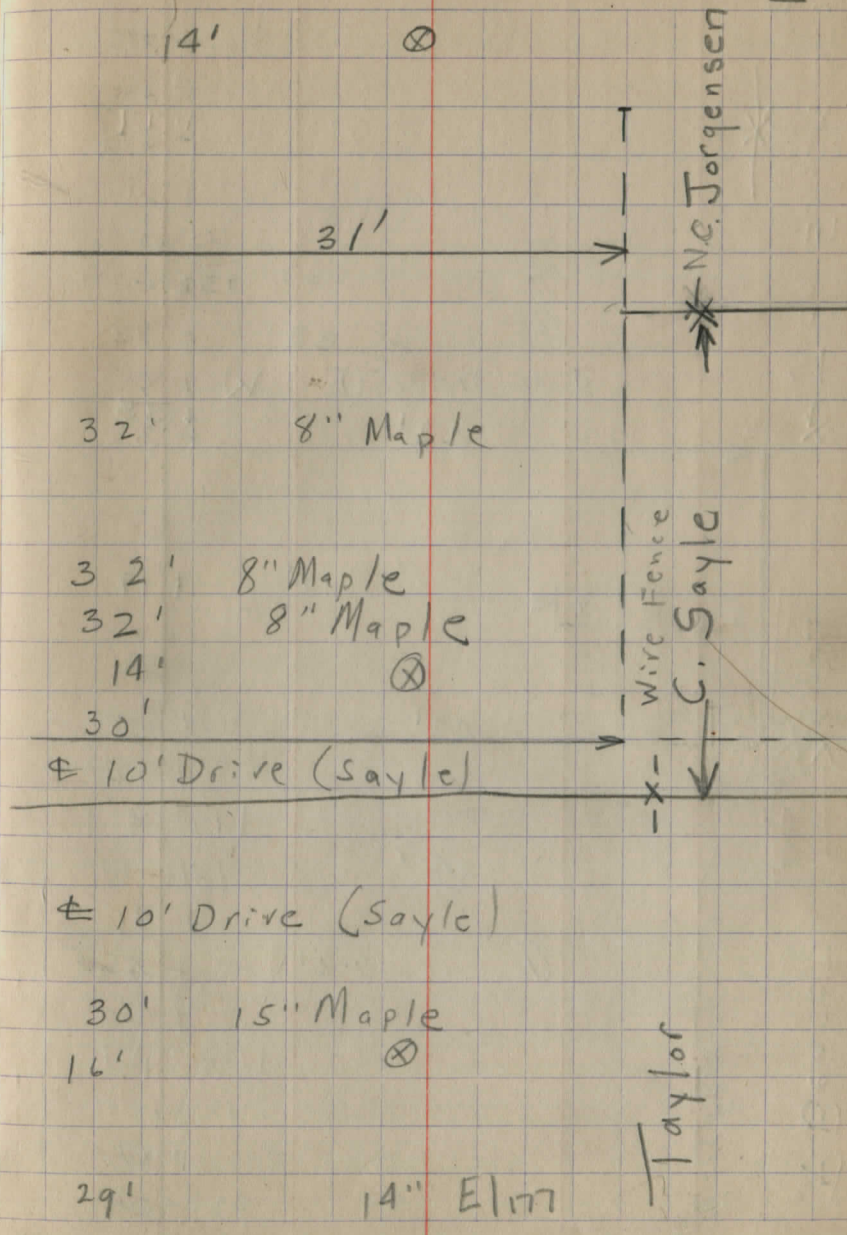 14' ⊗
N.C. Jorgensen
31'
32' 8" Maple
32' 8" Maple
32' 8" Maple
14' ⊗
30'
Wire Fence
C. Sayle
℄ 10' Drive (Sayle)
-x-
℄ 10' Drive (Sayle)
30' 15" Maple
16' ⊗
Taylor
29' 14" Elm